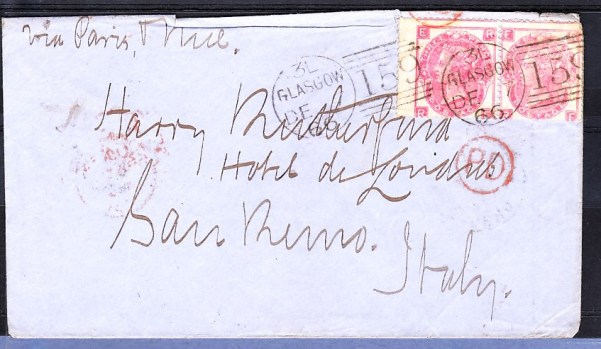 via Paris, & Nice.
3L
GLASGOW
DE 7
66
159
3L
GLASGOW
DE 7
66
159
E R
R E
Harry Rutherfurd
Hotel de Londres
PD
San Remo.
Italy.